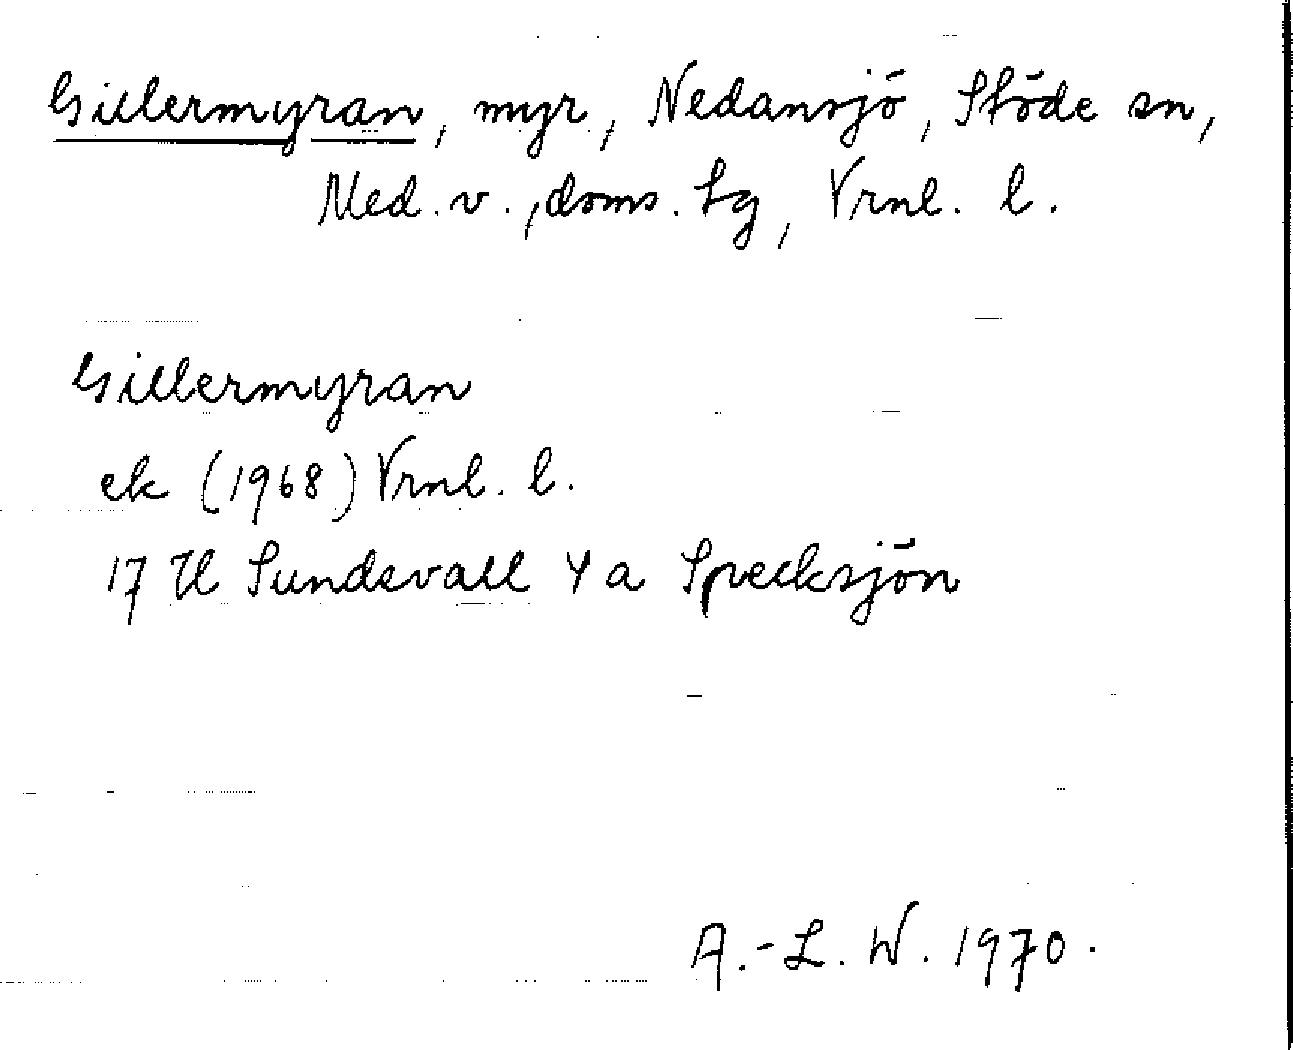 Gillermyran, myr, Nedansjö, Stöde sn,
Med. v., doms. lg, Vrnl. l.
Gillermyran
ek (1968) Vrnl. l.
17 H Sundsvall 4 a Specksjön
A.-L. W. 1970.